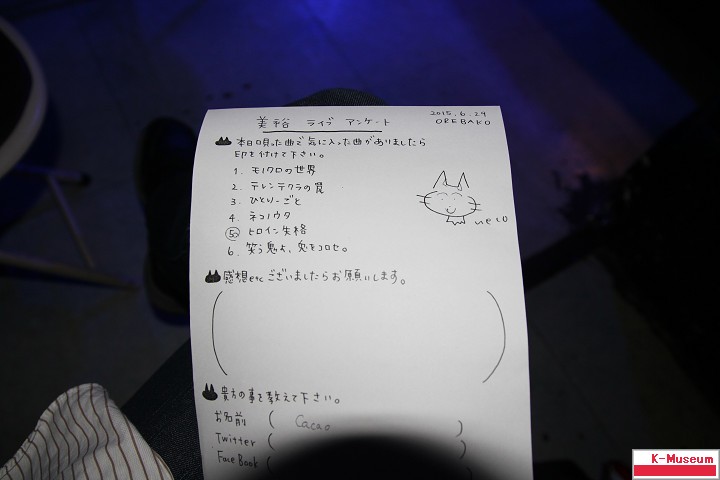 美裕 ライブ アンケート
2015.6.24
OREBAKO
本日唄った曲で気に入った曲がありましたら
印を付けて下さい。
1. モノクロの世界
2. テレンテクラの罠
3. ひとりーごと
4. ネコノウタ
5. ヒロイン失格
6. 笑う鬼よ、虎をコロセ。
neco
感想etcございましたらお願いします。
貴方の事を教えて下さい。
お名前 ( Cacao )
Twitter ( )
FaceBook (
K-Museum